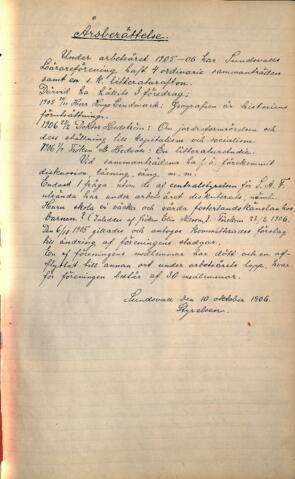 Årsberättelse.
Under arbetsåret 1905-06 har Sundsvalls
Lärareförening haft 4 ordinarie sammanträden
samt en s. k. litteraturafton.
Därvid ha hållits 3 föredrag;
1905 Herr Hugo Lindmark: Geografien är historiens
förutsättning.
1906 Doktor Hedström: Om jordreformvörden och
dess ställning till kapitalism och socialism.
1906 Fröken Hedvall: Om litteraturstudier.
Vid sammanträdena ha f. ö. förekommit
diskussion, läsning, sång m. m.
Endast 1 fråga utom de af centralstyrelsen för S. A. F.
utsända har under arbetsåret diskuterats, näml.
Huru skola vi väcka och vårda fosterlandskänslan hos
barnen? (Inledes af fröken Elin Kern). Fröken 17/2 1906.
Den 1905 gillades och antogs kommitterades förslag
till ändring af föreningens stadgar.
En af föreningens medlemmar har dött och en af-
flyttat till annan ort under arbetsårets lopp, hvar-
för föreningen består af 30 medlemmar.
Sundsvall den 10 oktober 1906.
Styrelsen.